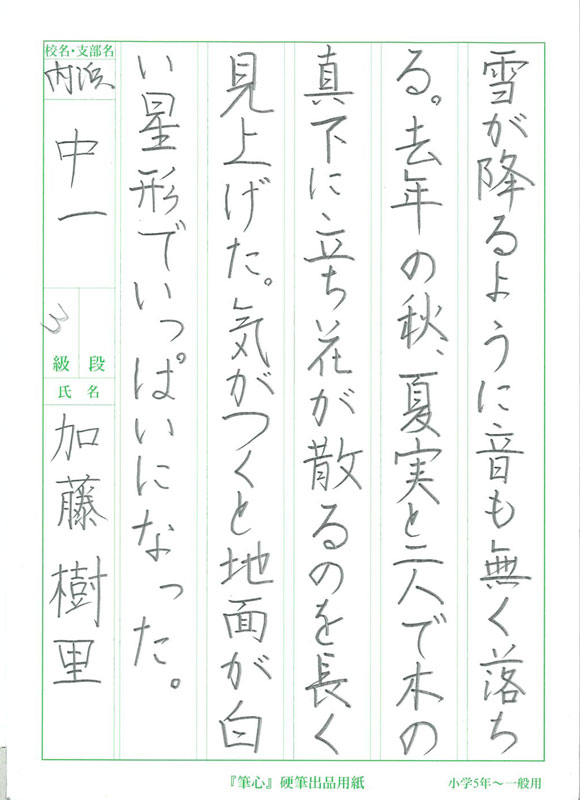 雪が降るように音も無く落ち
る。去年の秋、夏実と二人で木の
真下に立ち花が散るのを長く
見上げた。気がつくと地面が白
い星形でいっぱいになった。
校名・支部名
内浜
中一
3
級 段
氏 名
加藤樹里
『筆心』硬筆出品用紙
小学5年〜一般用